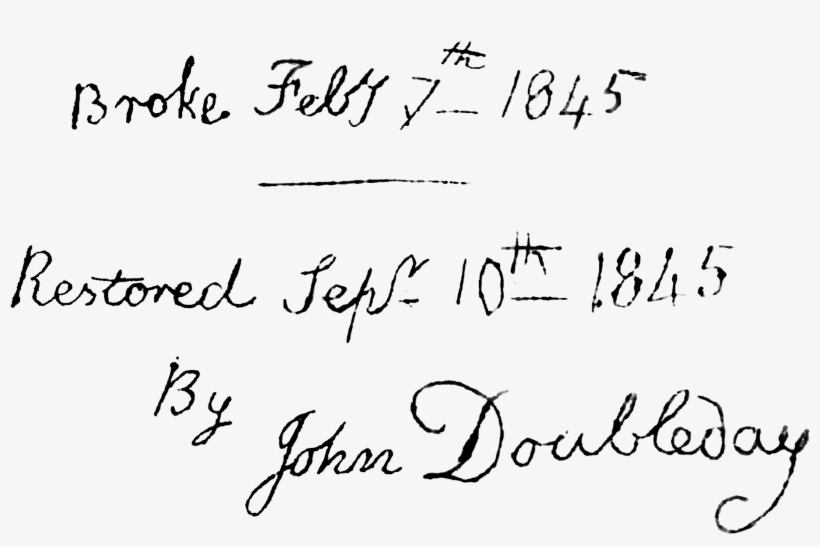 Broke Feby 7th 1845
Restored Sepr 10th 1845
By
John Doubleday